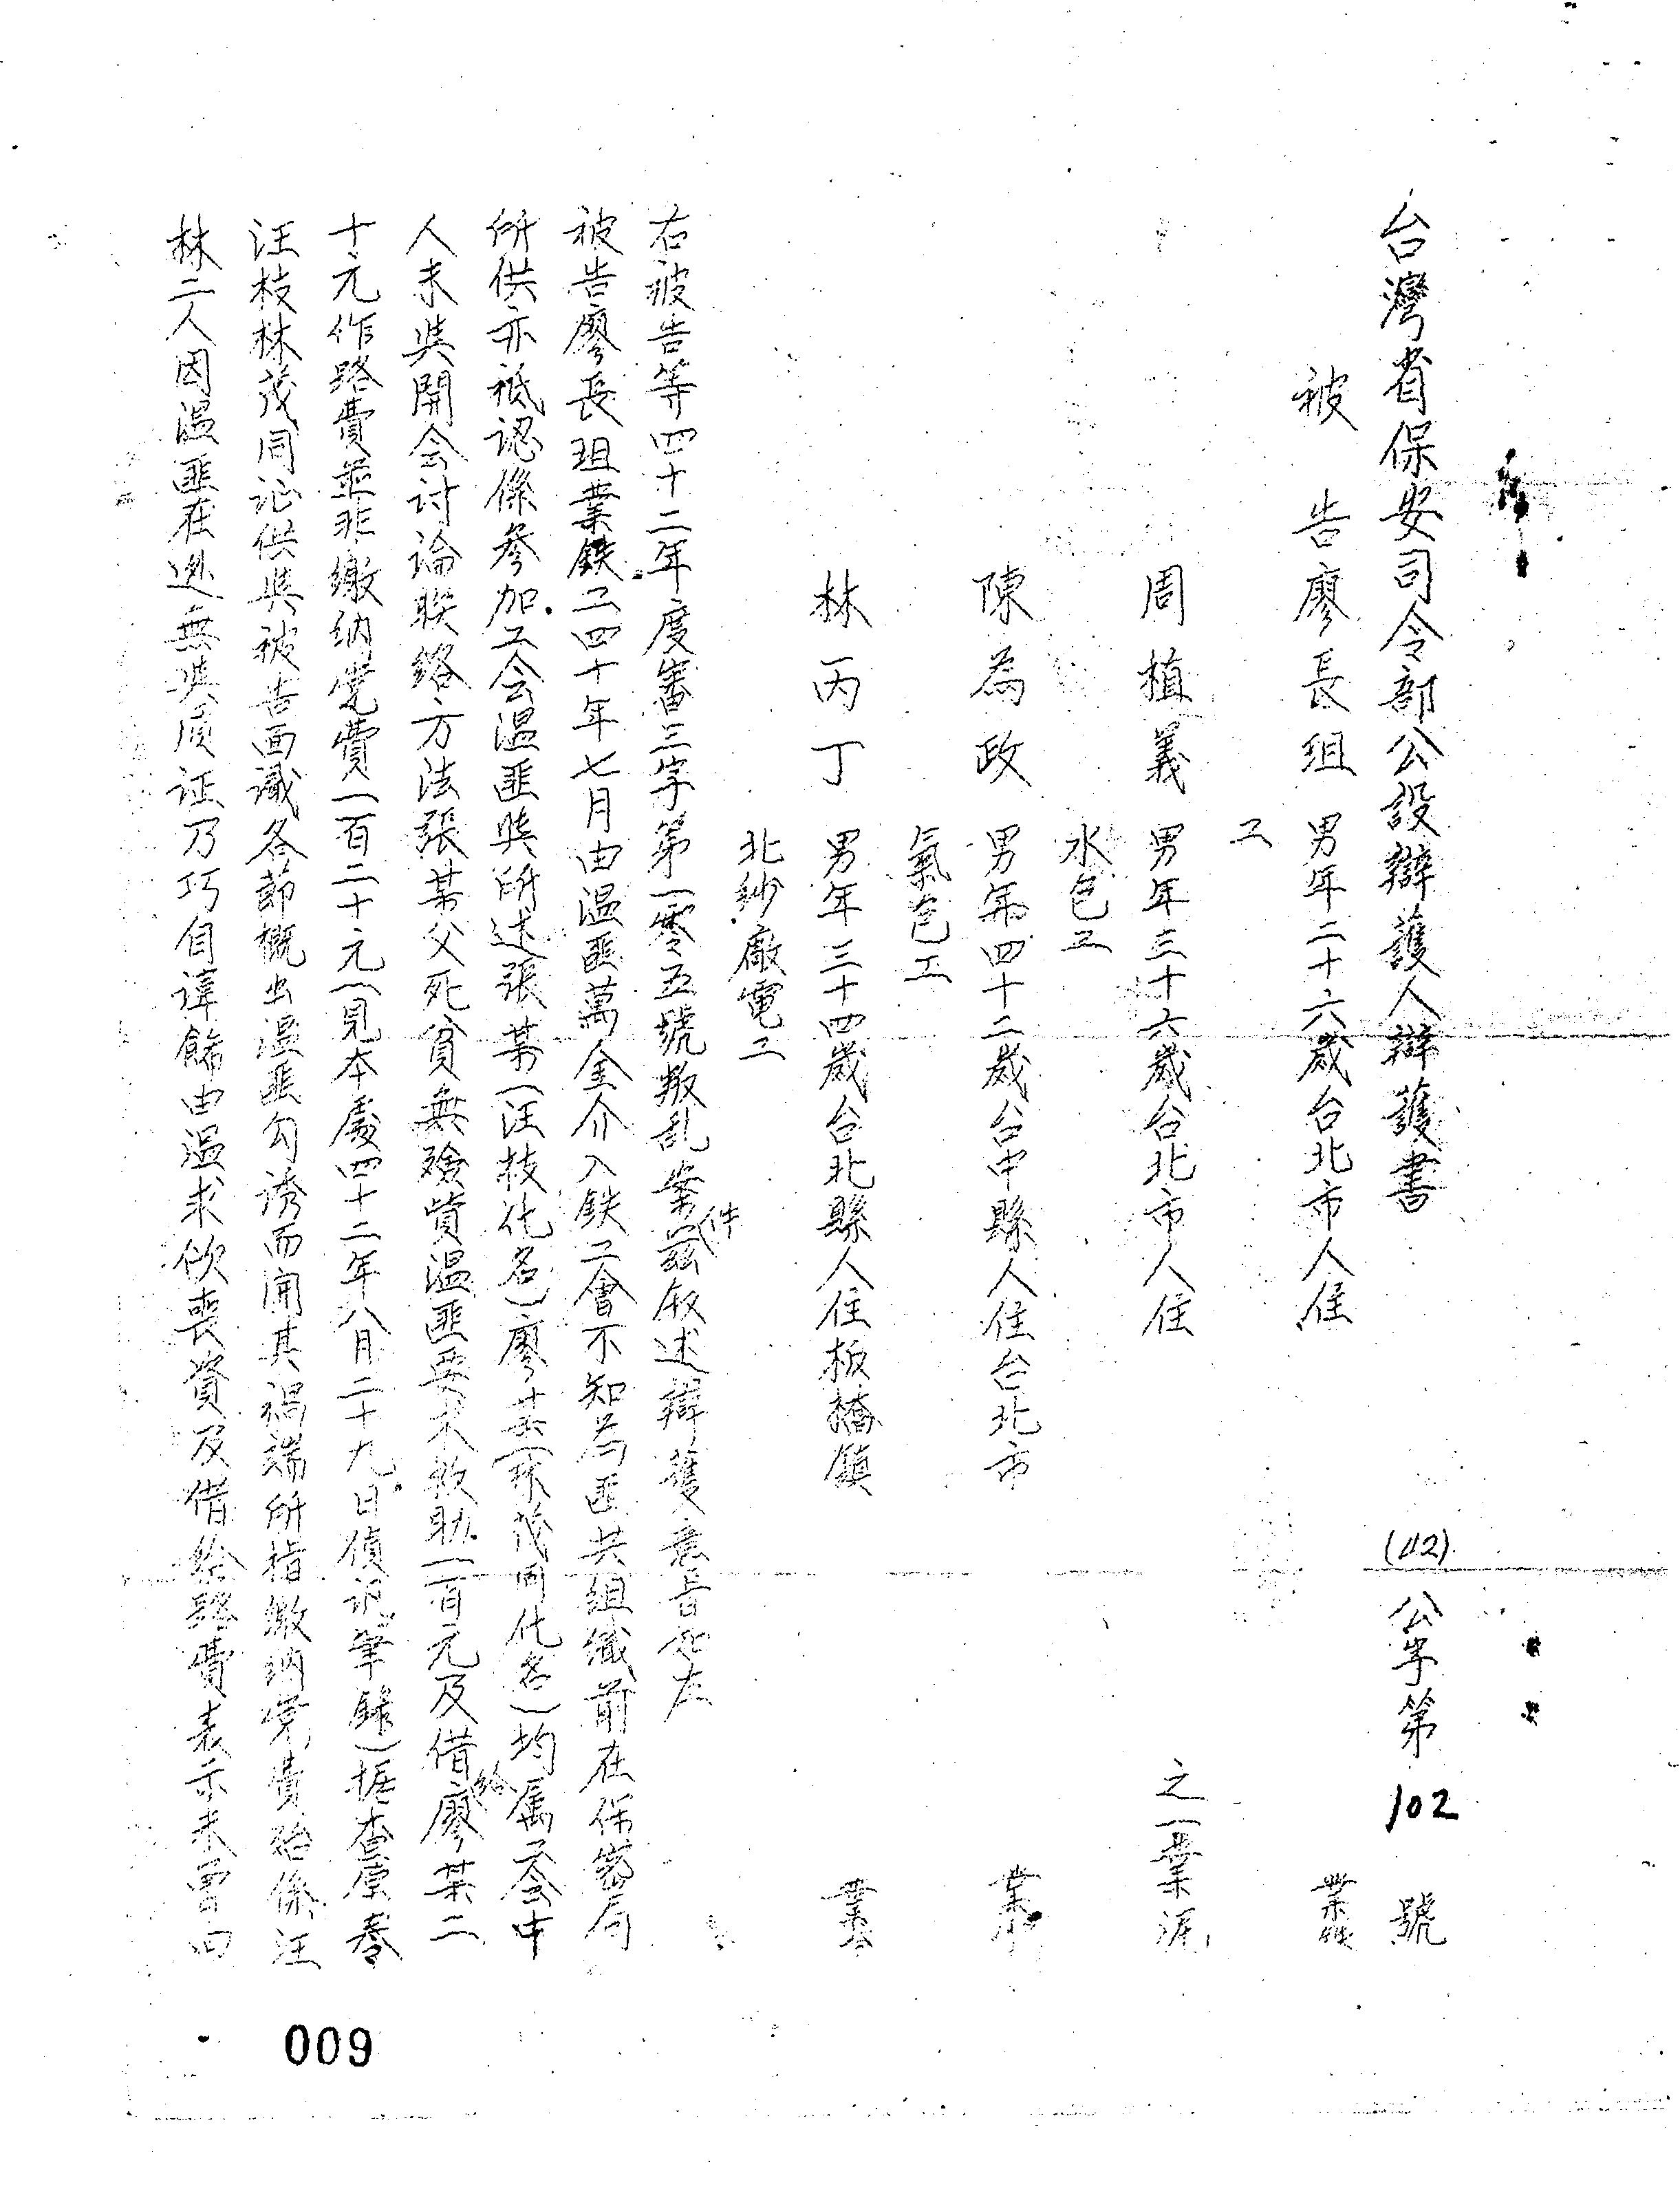 台灣省保安司令部公設辯護人辯護書 (42)公字第102號
被告廖長珇 男年二十六歲台北市人住 業
工
周植義 男年三十六歲台北市人住 之一業泥
水包工
陳為政 男年四十二歲台中縣人住台北市 業
氣包工
林丙丁 男年三十四歲台北縣人住板橋鎮 業
北紗廠電工
右被告等四十二年度審三字第一零五號叛乱案件茲敘述辯護意旨如左
被告廖長珇業鉄工四十年七月由溫匪萬金介入鉄工會不知為匪共組織前在保密局
所供亦祇認係參加工会溫匪與所述張某(汪枝化名)廖某(林茂同化名)均属工会中
人未與開会讨論联络方法張某父死貧無殮貲溫匪要求救助一百元及借給廖某二
十元作路費並非繳纳党費一百二十元(見本處四十二年八月二十九日偵訊筆錄)据查原卷
汪枝林茂同証供與被告面識各節概出溫匪勾誘而開其禍端所指繳纳党費殆係汪
林二人因溫匪在逃無與质证乃巧自諱飾由溫求伙喪資及借給路費表示未曾由
009